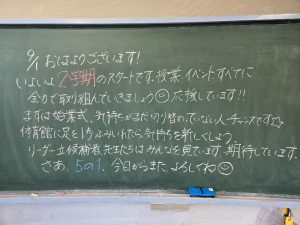 9/1 おはようございます!
いよいよ2学期のスタートです。授業、イベント、すべてに
全力で取り組んでいきましょう☺応援しています!!
まずは始業式。気持ちがまだ切り替わっていない人、チャンスですよ
体育館に足を1歩ふみいれたら気持ちを新しくしよう。
リーダー立候補者、先生たちはみんなを見ています。期待しています。
さあ、5の1、今日からまたよろしくね☺